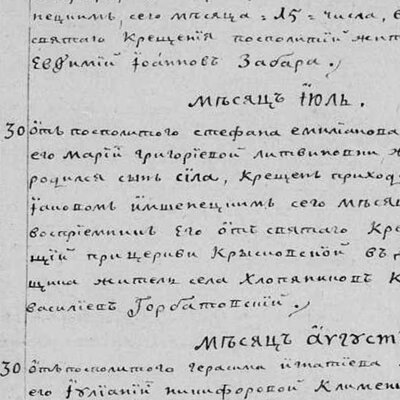 пецкимъ, сего мѣсяца =15= числа, в
святаго Крещенія посполитій жит
Евфимій Іоанновъ Забара.
Мѣсяцъ Іюль.
30 Ѿ посполитого стефана емиліанова
его маріи григоріевой литвиновни, ж
родился сынъ сіла, крещенъ приход
Іаковомъ имшенецкимъ сего мѣсяц
воспріемникъ его ѿ святаго Кре
щій прицеркви Крысковской въ д
щика житель села хлопяников К
василіевъ Горбатовскій.
Мѣсяцъ Августъ
30 Ѿ посполитого герасима игнатіева
его Іуліаній никифоровой Климен